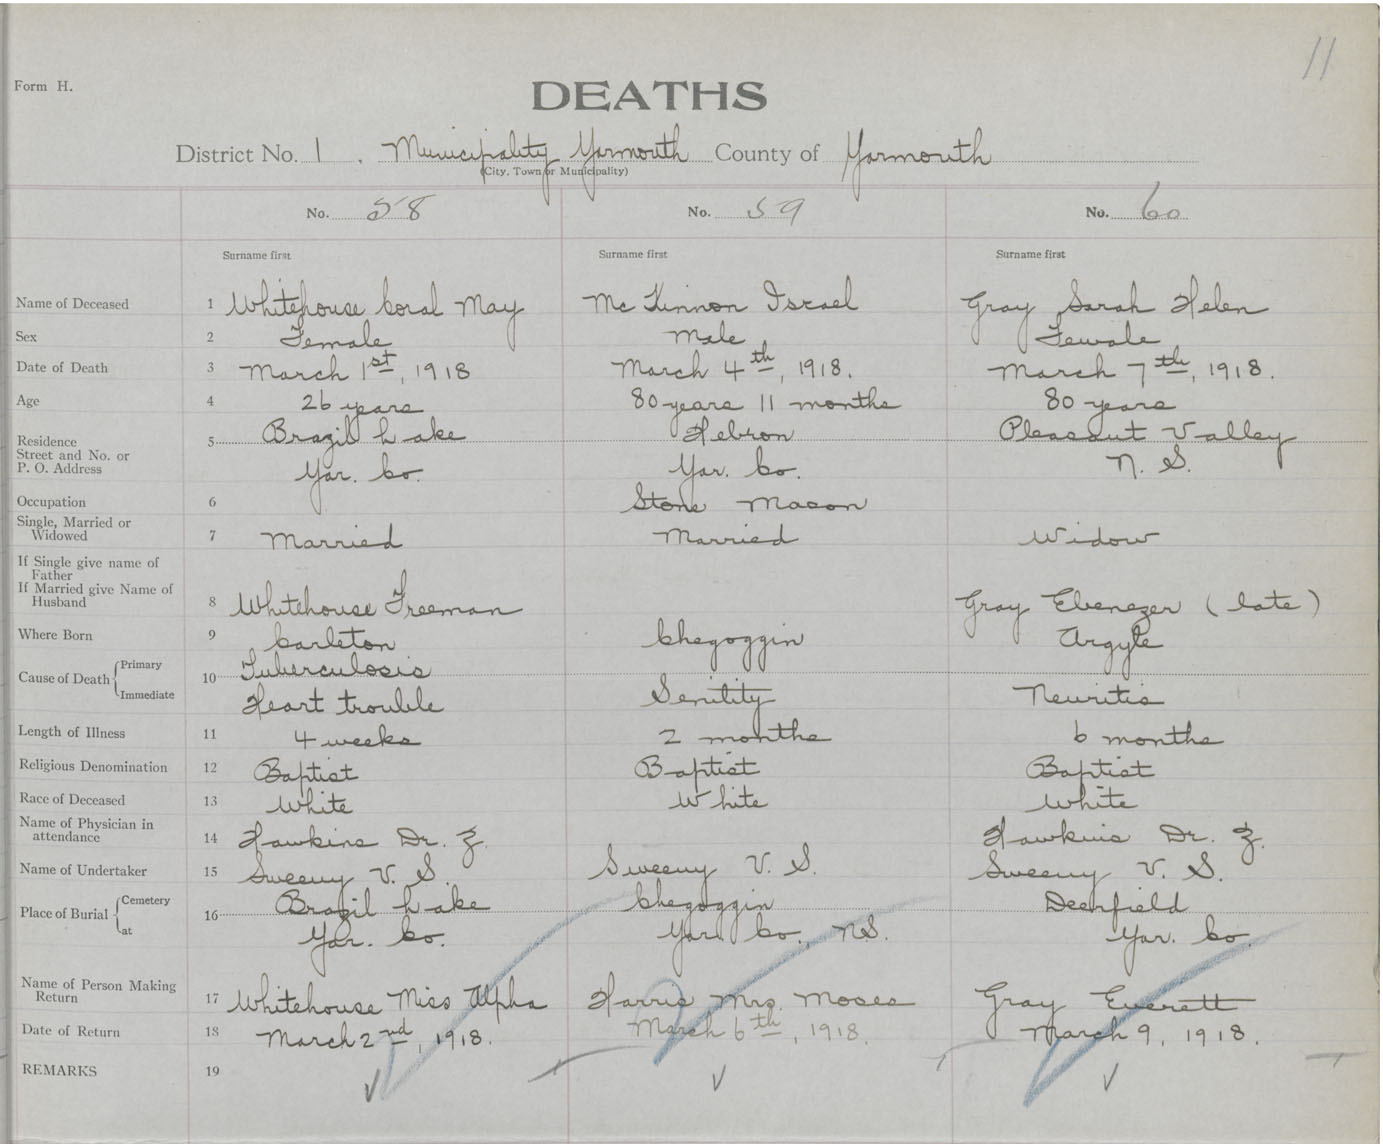 11
Form H.
DEATHS
District No. 1. Municipality Yarmouth County of Yarmouth
(City, Town or Municipality)
No. 58 No. 59 No. 60
Surname first Surname first Surname first
Name of Deceased 1 Whitehouse Coral May Mc Kinnon Israel Gray Sarah Helen
Sex 2 Female Male Female
Date of Death 3 March 1st, 1918 March 4th, 1918. March 7th, 1918.
Age 4 26 years 80 years 11 months 80 years
Residence 5 Brazil Lake Hebron Pleasant Valley
Street and No. or
P. O. Address Yar. Co. Yar. Co. N. S.
Occupation 6 Stone Mason
Single, Married or
Widowed 7 Married Married Widow
If Single give name of
Father
If Married give Name of
Husband 8 Whitehouse Freeman Gray Ebenezer (late)
Where Born 9 Carleton Chegoggin Argyle
Cause of Death Primary 10 Tuberculosis
Immediate Heart trouble Senility Neuritis
Length of Illness 11 4 weeks 2 months 6 months
Religious Denomination 12 Baptist Baptist Baptist
Race of Deceased 13 White White White
Name of Physician in
attendance 14 Hawkins Dr. Z. Hawkins Dr. Z.
Name of Undertaker 15 Sweeny V. S. Sweeny V. S. Sweeny V. S.
Place of Burial Cemetery 16 Brazil Lake Chegoggin Deerfield
at Yar. Co. Yar. Co., N.S. Yar. Co.
Name of Person Making
Return 17 Whitehouse Miss Alpha Harris Mrs. Moses Gray Everett
Date of Return 18 March 2nd, 1918. March 6th, 1918. March 9, 1918.
REMARKS 19